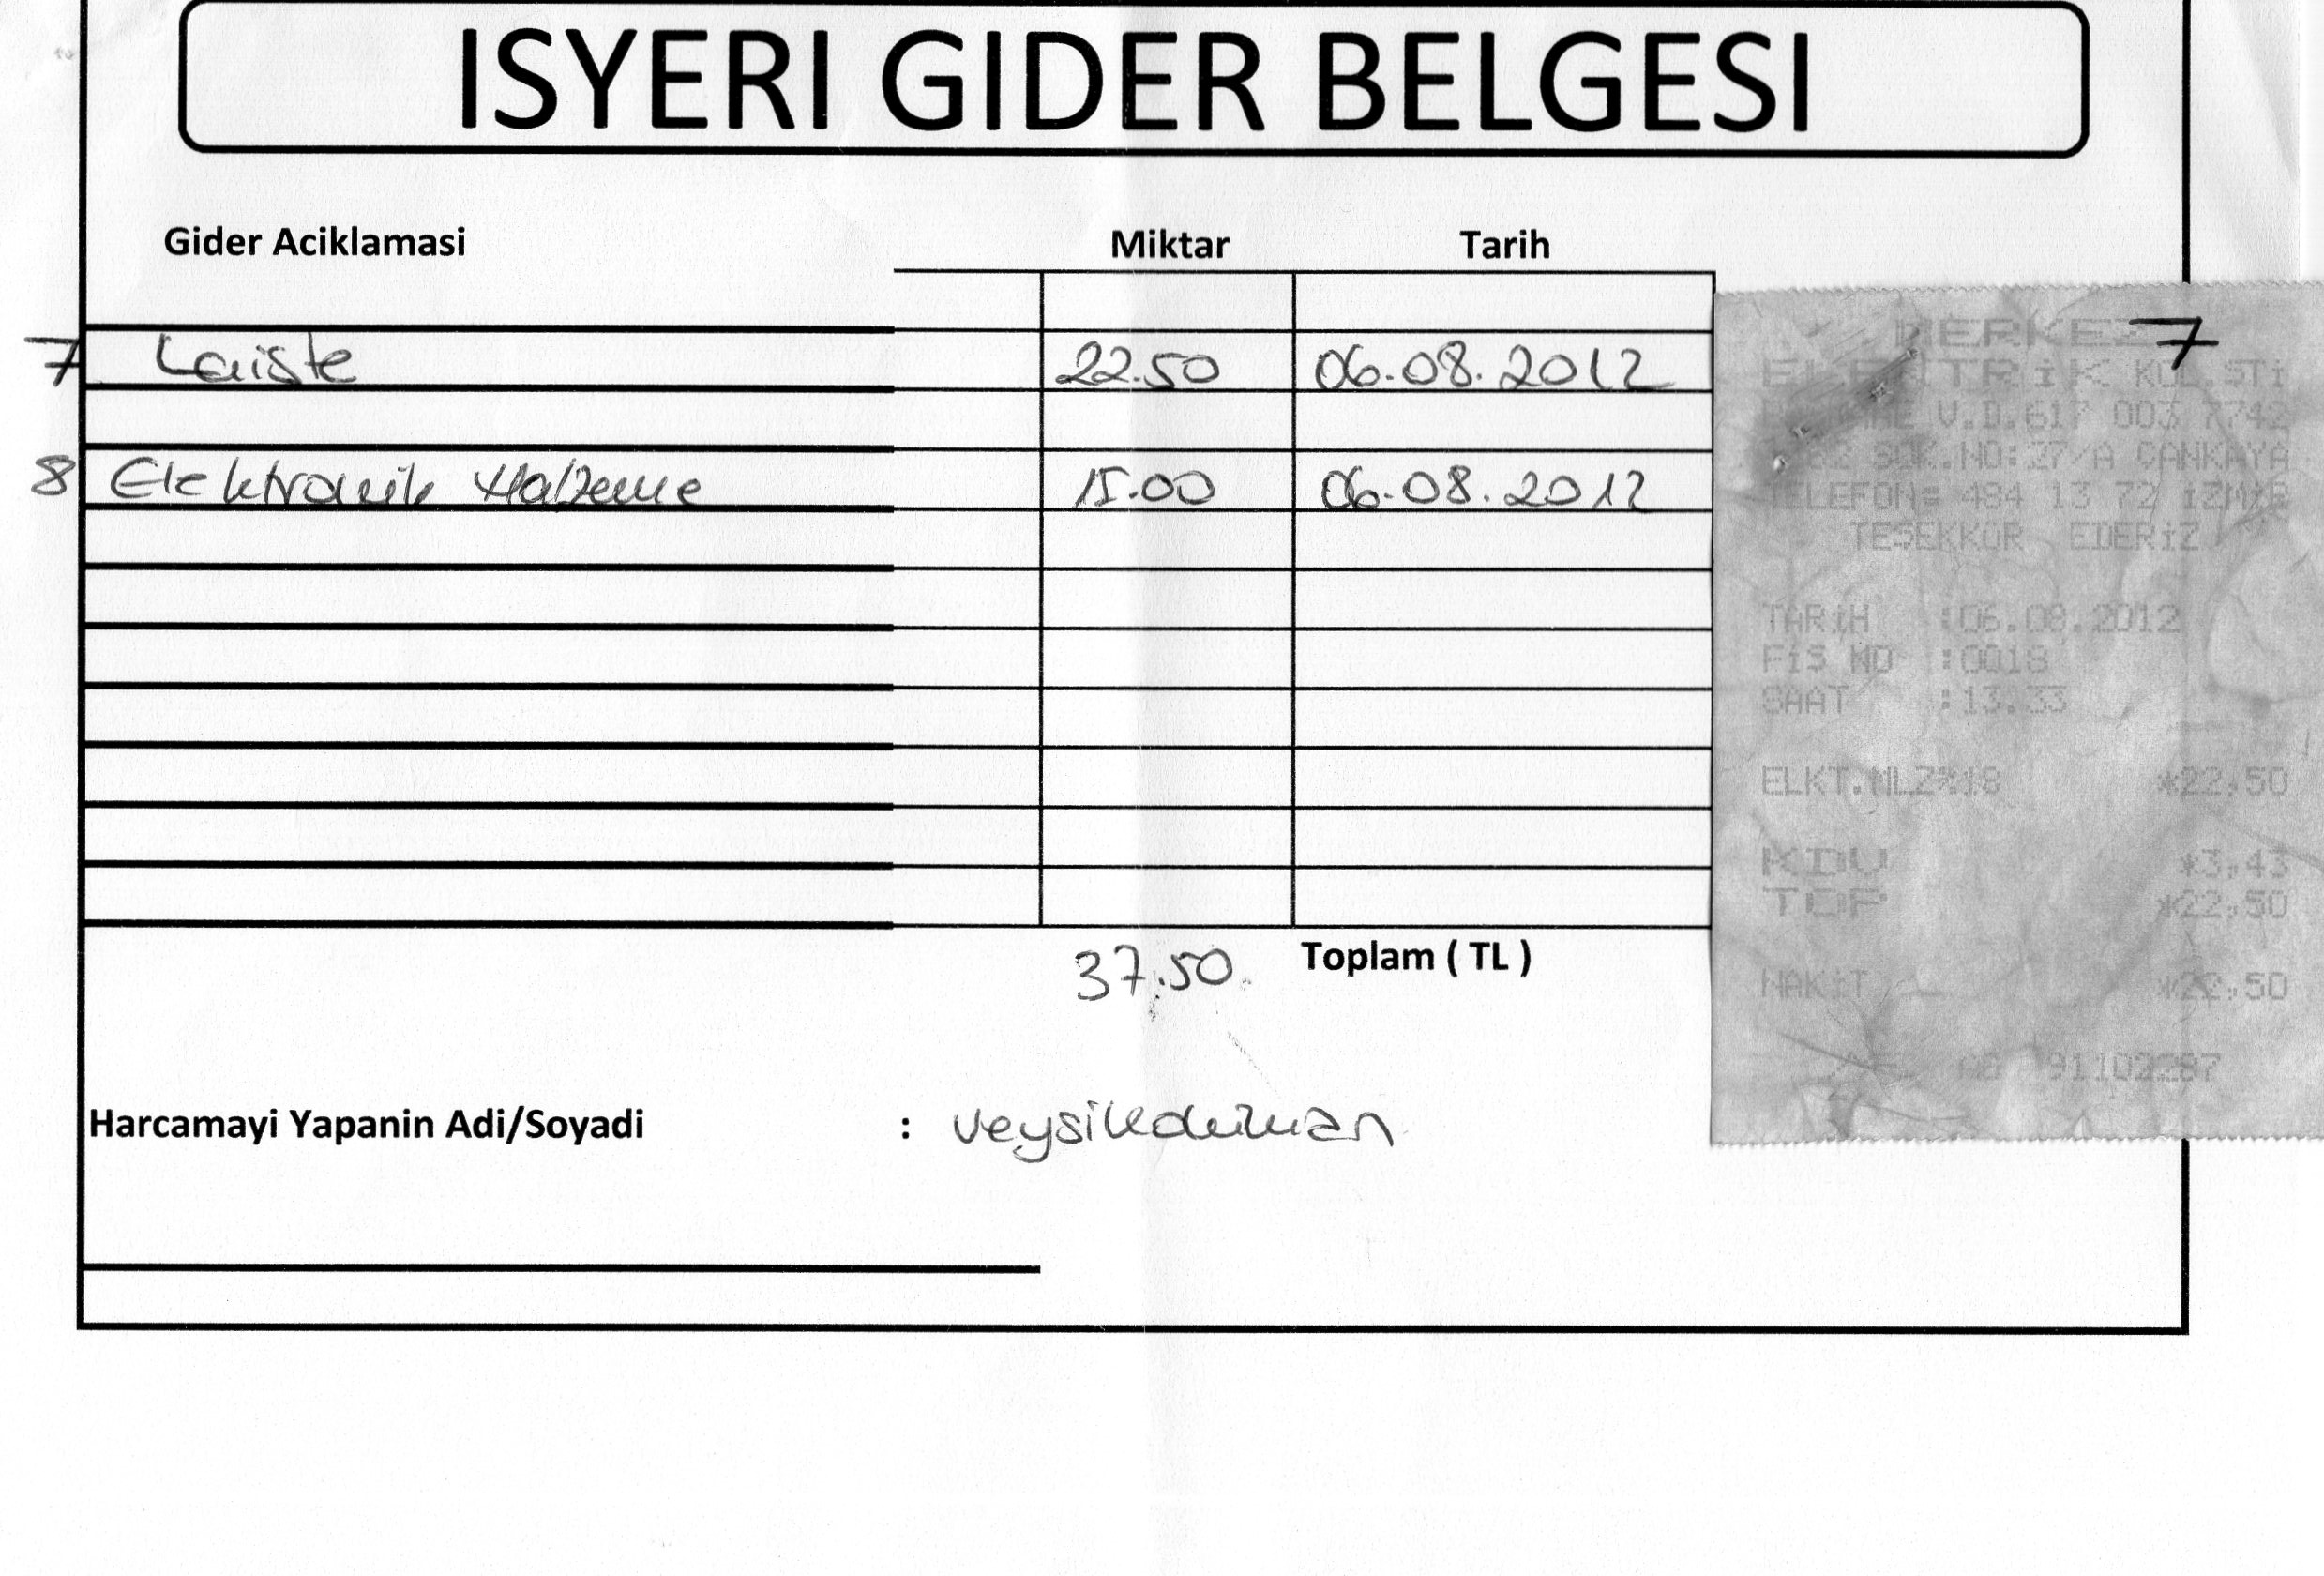 ISYERI GIDER BELGESI
Gider Aciklamasi Miktar Tarih
7 22.50 06.08.2012
8 Elektronik Malzeme 15.00 06.08.2012
37.50 Toplam ( TL )
Harcamayi Yapanin Adi/Soyadi :
7
MERKEZ
ELEKTRiK KOL.STi
V.D.617 003 7742
SOK.NO:27/A CANKAYA
TELEFON: 484 13 72 iZMiR
TESEKKÜR EDERiZ
TARiH :06.08.2012
FiS NO :0018
SAAT :13.33
ELKT.MLZ%18 *22,50
KDV *3,43
TOP *22,50
NAKiT *22,50
91102287